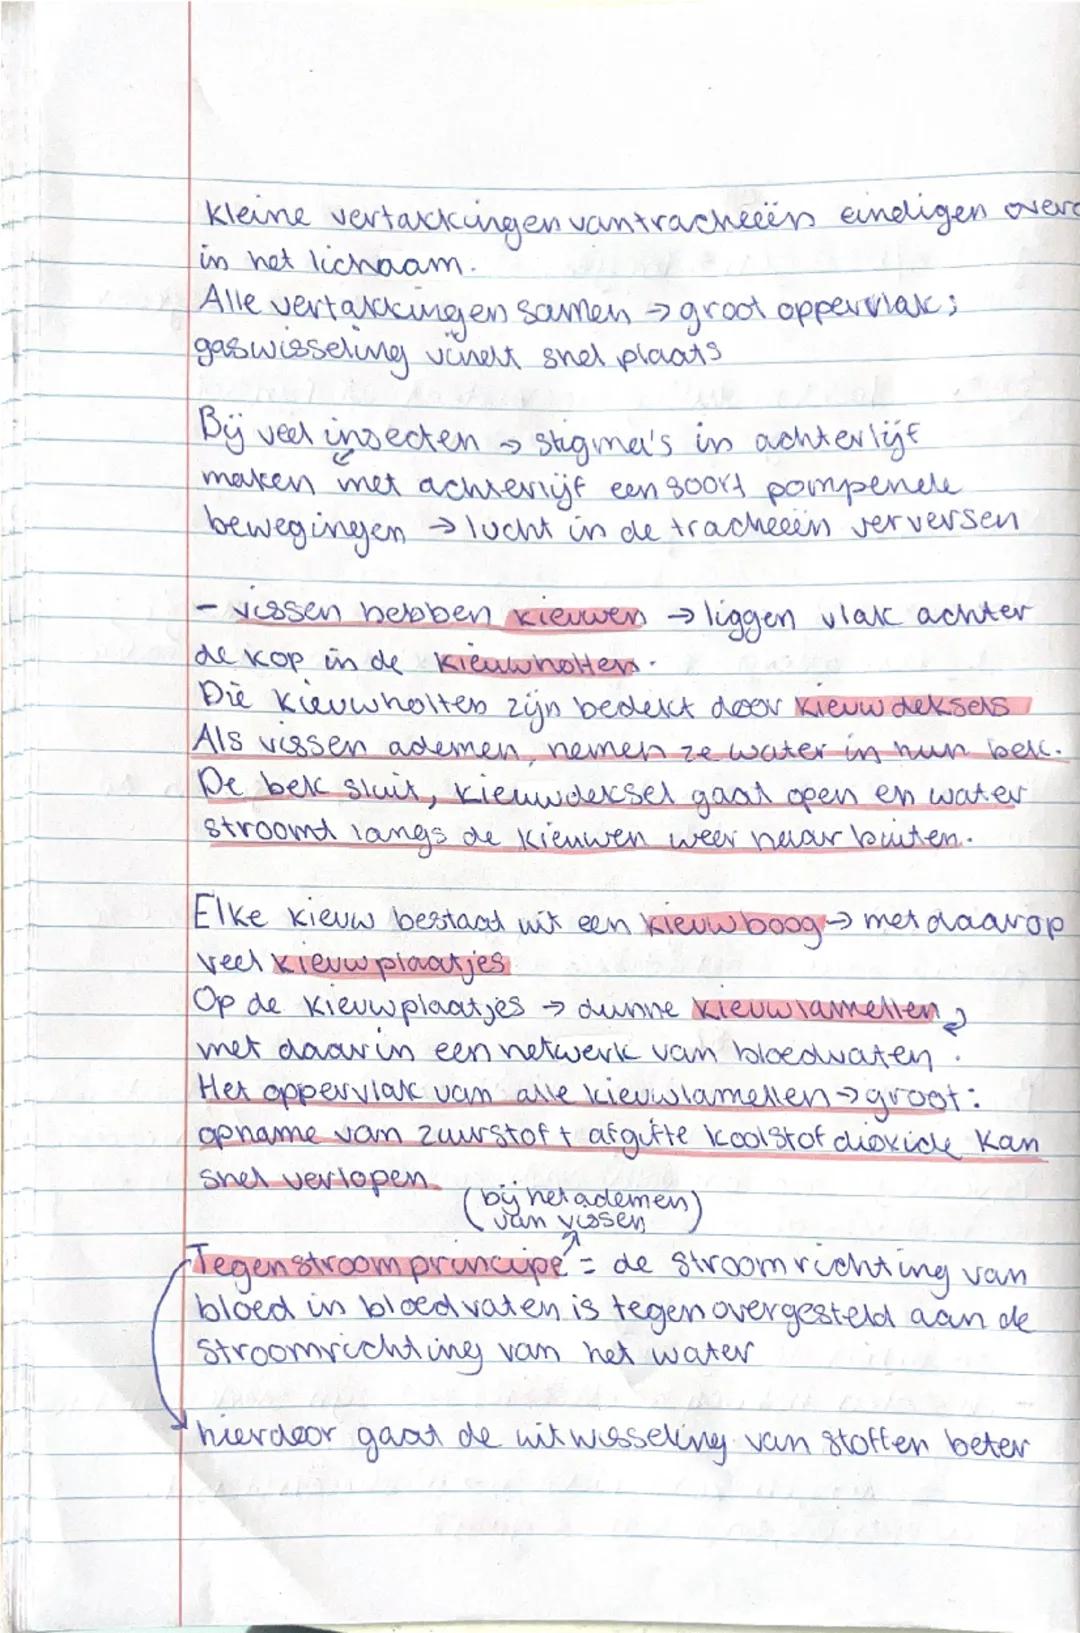 Kleine vertakkingen van tracheeën eindigen overa
in het lichaam.
Alle vertakkingen samen → groot oppervlak;
gaswisseling vindt snel plaats
Bij veel insecten → stigma's in achterlijf
maken met achterlijf een soort pompende
bewegingen → lucht in de tracheeën verversen
- vissen hebben kieuwen → liggen vlak achter
de kop in de kieuwholten.
Die kieuwholten zijn bedekt door kieuwdeksels
Als vissen ademen, nemen ze water in hun bek.
De bek sluit, kieuwdeksel gaat open en water
stroomt langs de kieuwen weer naar buiten.
Elke kieuw bestaat uit een kieuwboog → met daarop
veel kieuwplaatjes
Op de kieuwplaatjes → dunne kieuwlamellen
met daarin een netwerk van bloedvaten.
Het oppervlak van alle kieuwlamellen → groot:
opname van zuurstof + afgifte koolstofdioxide kan
snel verlopen.
(bij het ademen
van vissen)
Tegenstroomprincipe = de stroomrichting van
bloed in bloedvaten is tegenovergesteld aan de
stroomrichting van het water
hierdoor gaat de uitwisseling van stoffen beter